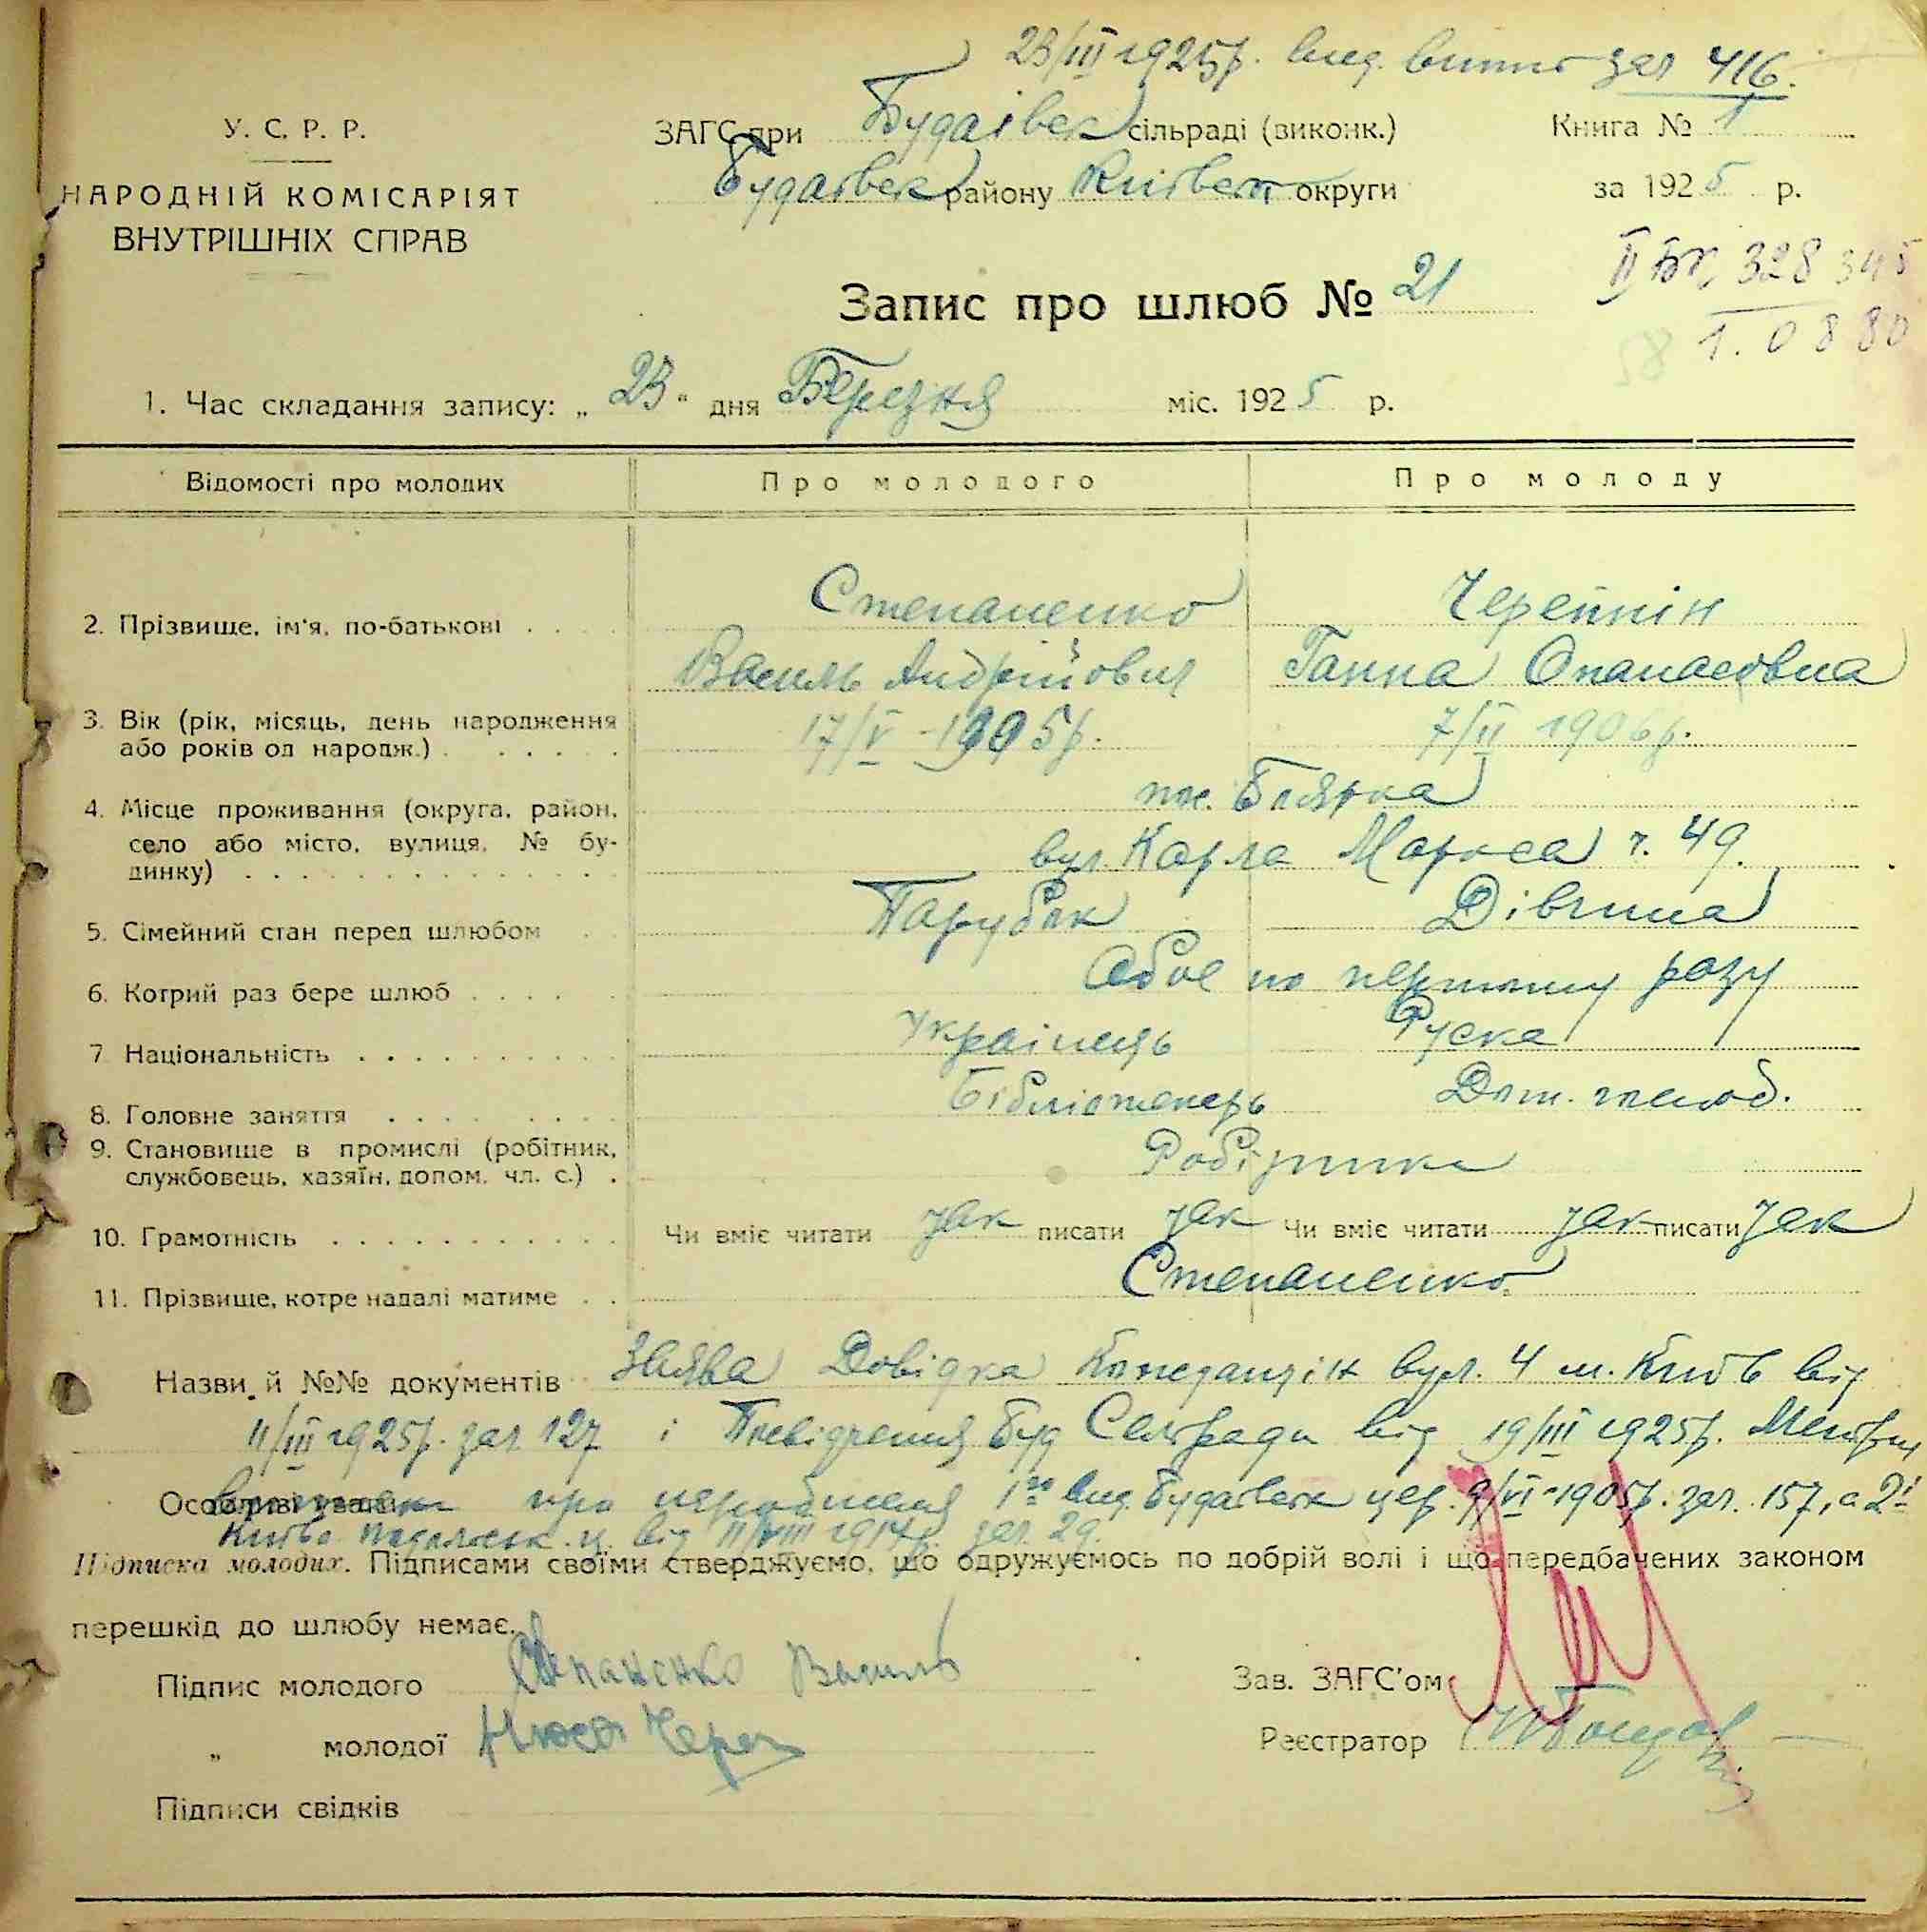 23/III 1925р. вид. витяг за № 416.
У. С. Р. Р.
НАРОДНІЙ КОМІСАРІЯТ
ВНУТРІШНІХ СПРАВ
ЗАГС при Будаївск сільраді (виконк.)
Будаївск району Київськ округи
Книга № 1
за 1925 р.
328 345
1. 0 8 80
58
Запис про шлюб № 21
1. Час складання запису: „ 23 “ дня Березня міс. 1925 р.
Відомості про молодих
Про молодого
Про молоду
2. Прізвище, ім'я, по-батькові . . . .
Степаненко
Василь Андрійович
Ганна Опанасовна
3. Вік (рік, місяць, день народження
або років од народж.) . . . . . .
17/V - 1905р.
7/II 1906р.
4. Місце проживання (округа, район,
село або місто, вулиця, № бу-
динку) . . . . . . . . . . . . . .
пос. Боярка
вул. Карла Маркса ч. 49.
5. Сімейний стан перед шлюбом
Парубок
Дівчина
6. Котрий раз бере шлюб . . . .
Обоє по першому разу
7 Національність . . . . . . . . . .
Українець
Руска
8. Головне заняття . . . . . . . . .
Бібліотекарь
Дом. господ.
9. Становище в промислі (робітник,
службовець, хазяїн, допом. чл. с.) .
10. Грамотність . . . . . . . . . . .
Чи вміє читати так писати так
Чи вміє читати так писати так
11. Прізвище, котре надалі матиме . .
Степаненко
Назви й №№ документів Заява Довідка вул. 4 м. Київ від
11/III 1925р. за № 127 і Посвідчення Буд Сельради від 19/III 1925р.
Особливі уваги про 1го вид. Будаївск цер. 9/VI-1905р. за № 157, а 2ї
від 11/VIII 1914р. за № 29.
Підписка молодих. Підписами своїми стверджуємо, що одружуємось по добрій волі і що передбачених законом
перешкід до шлюбу немає.
Підпис молодого Степаненко Василь
„ молодої Нюся
Зав. ЗАГС'ом
Реєстратор
Підписи свідків